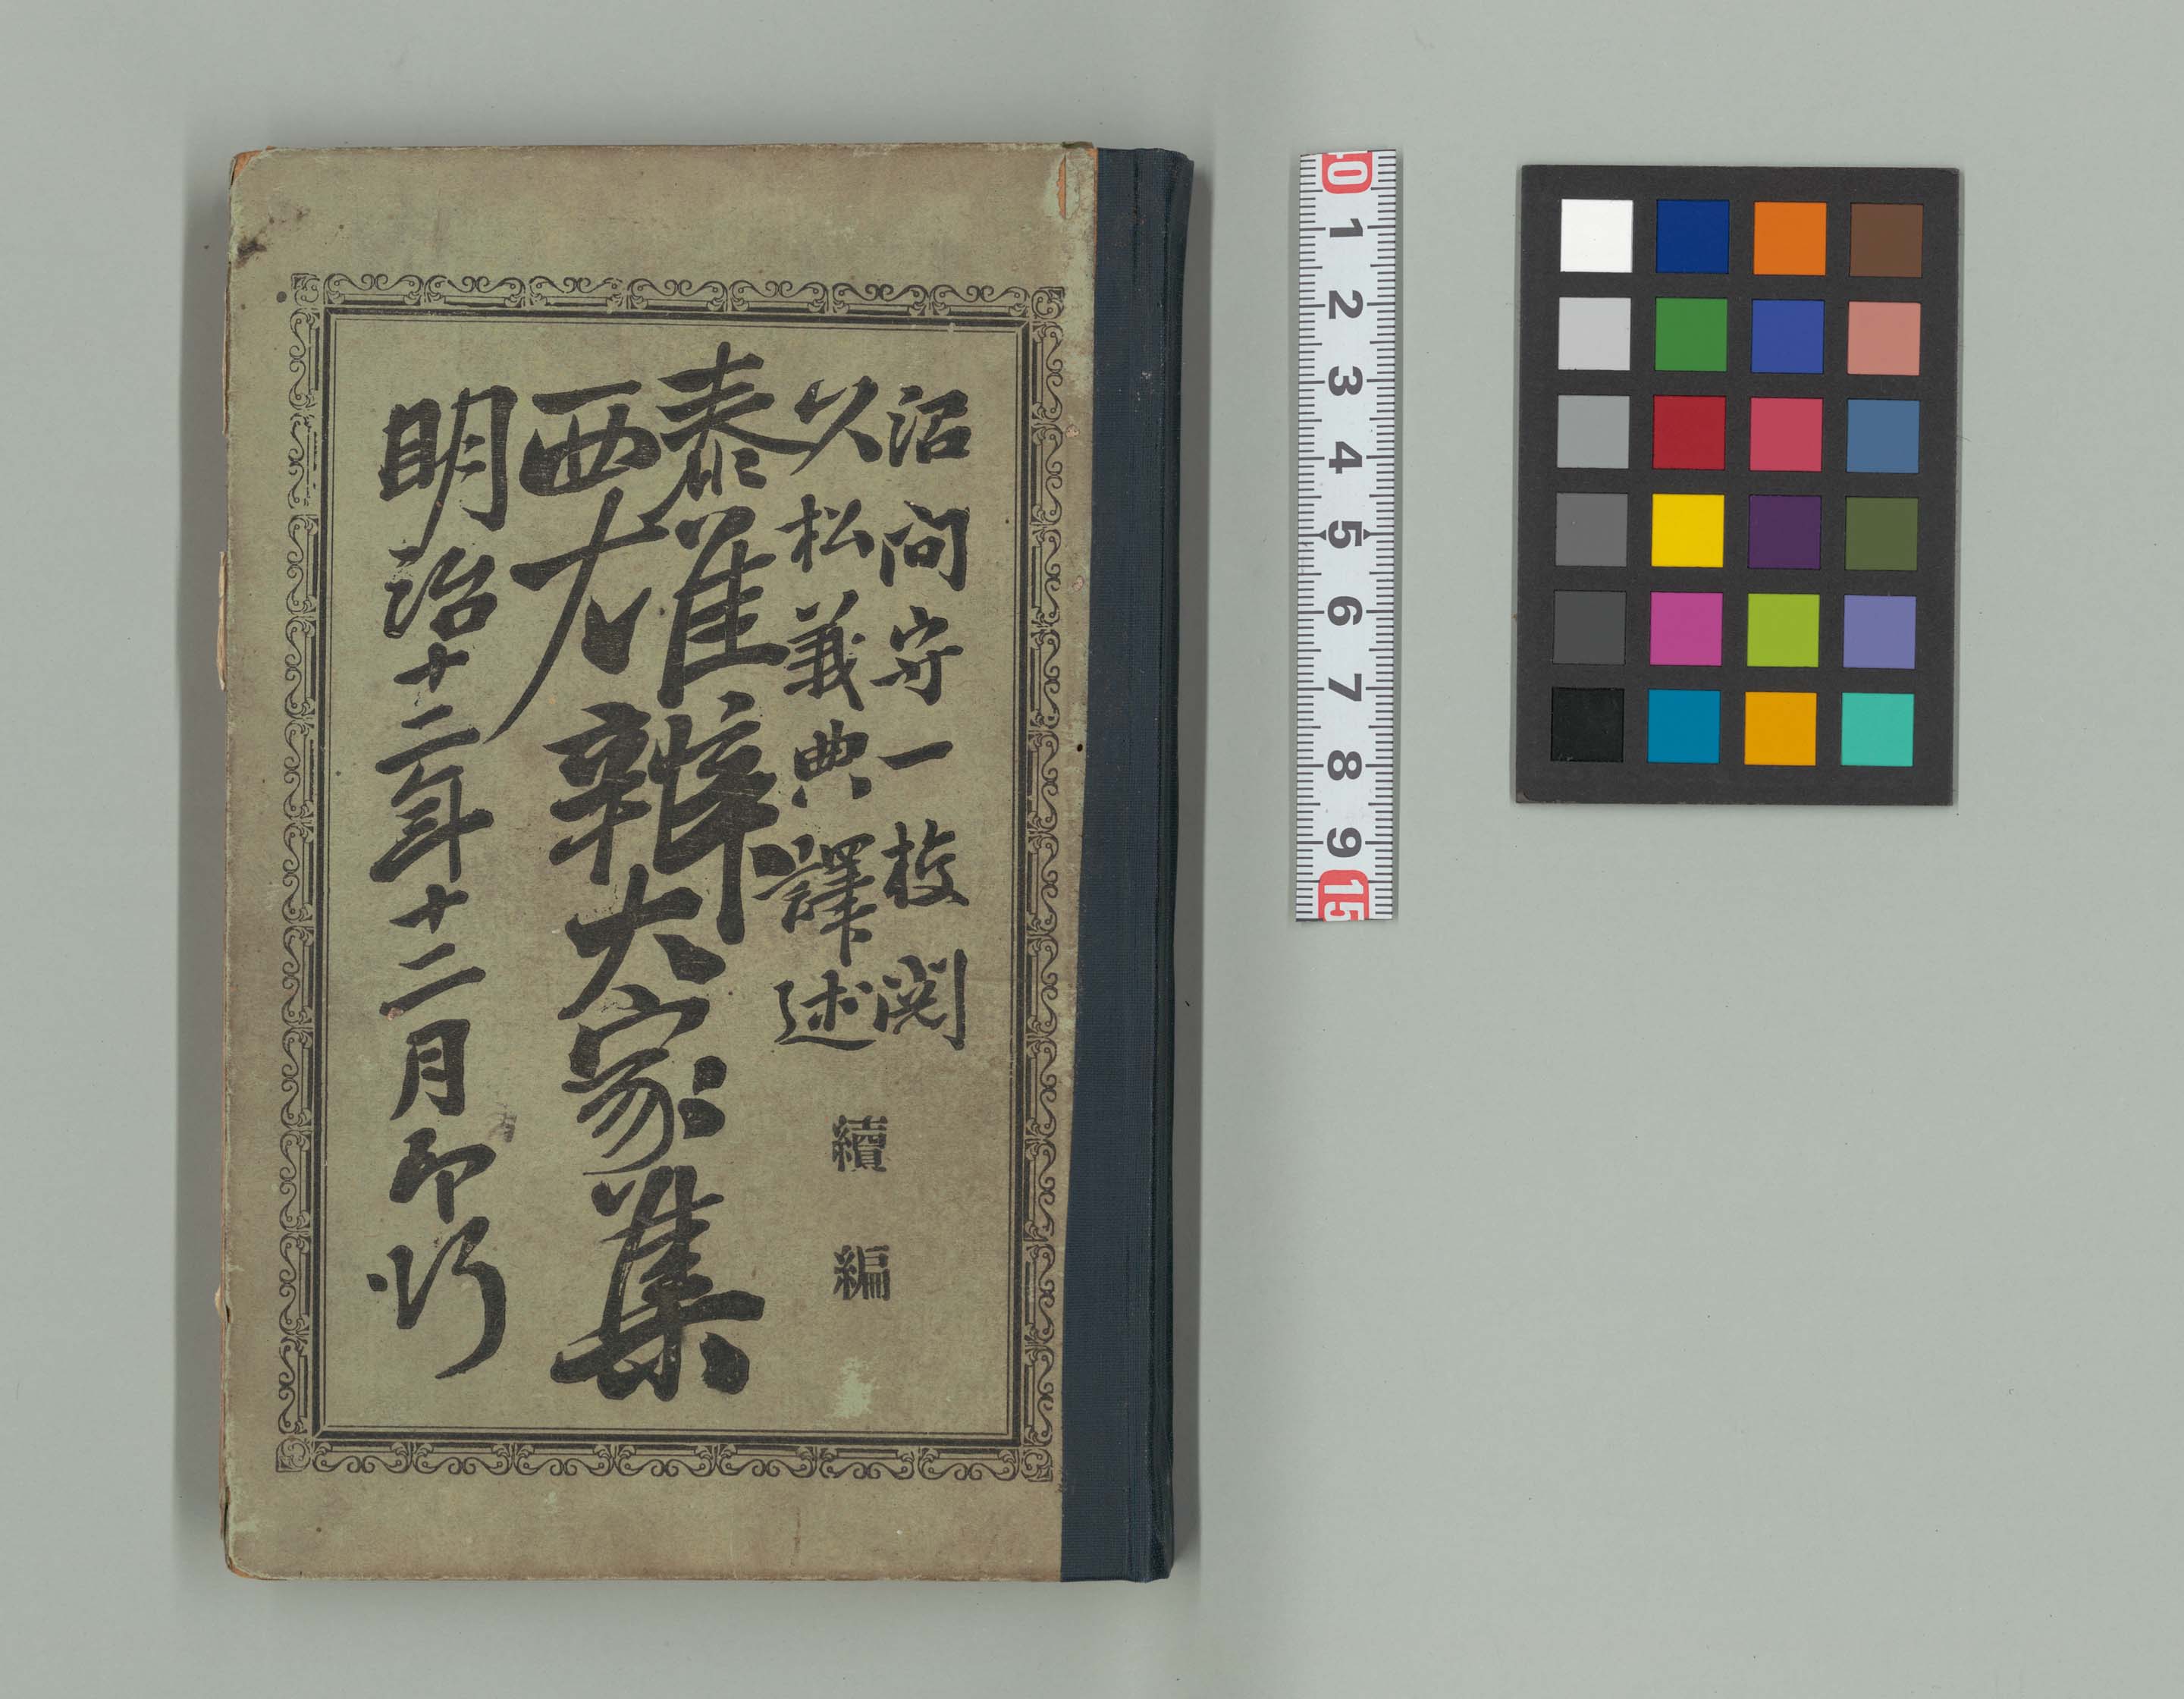 沼間守一校閲
久松義典譯述
續編
泰西雄辯大家集
明治十二年十二月印行
10 1 2 3 4 5 6 7 8 9 15